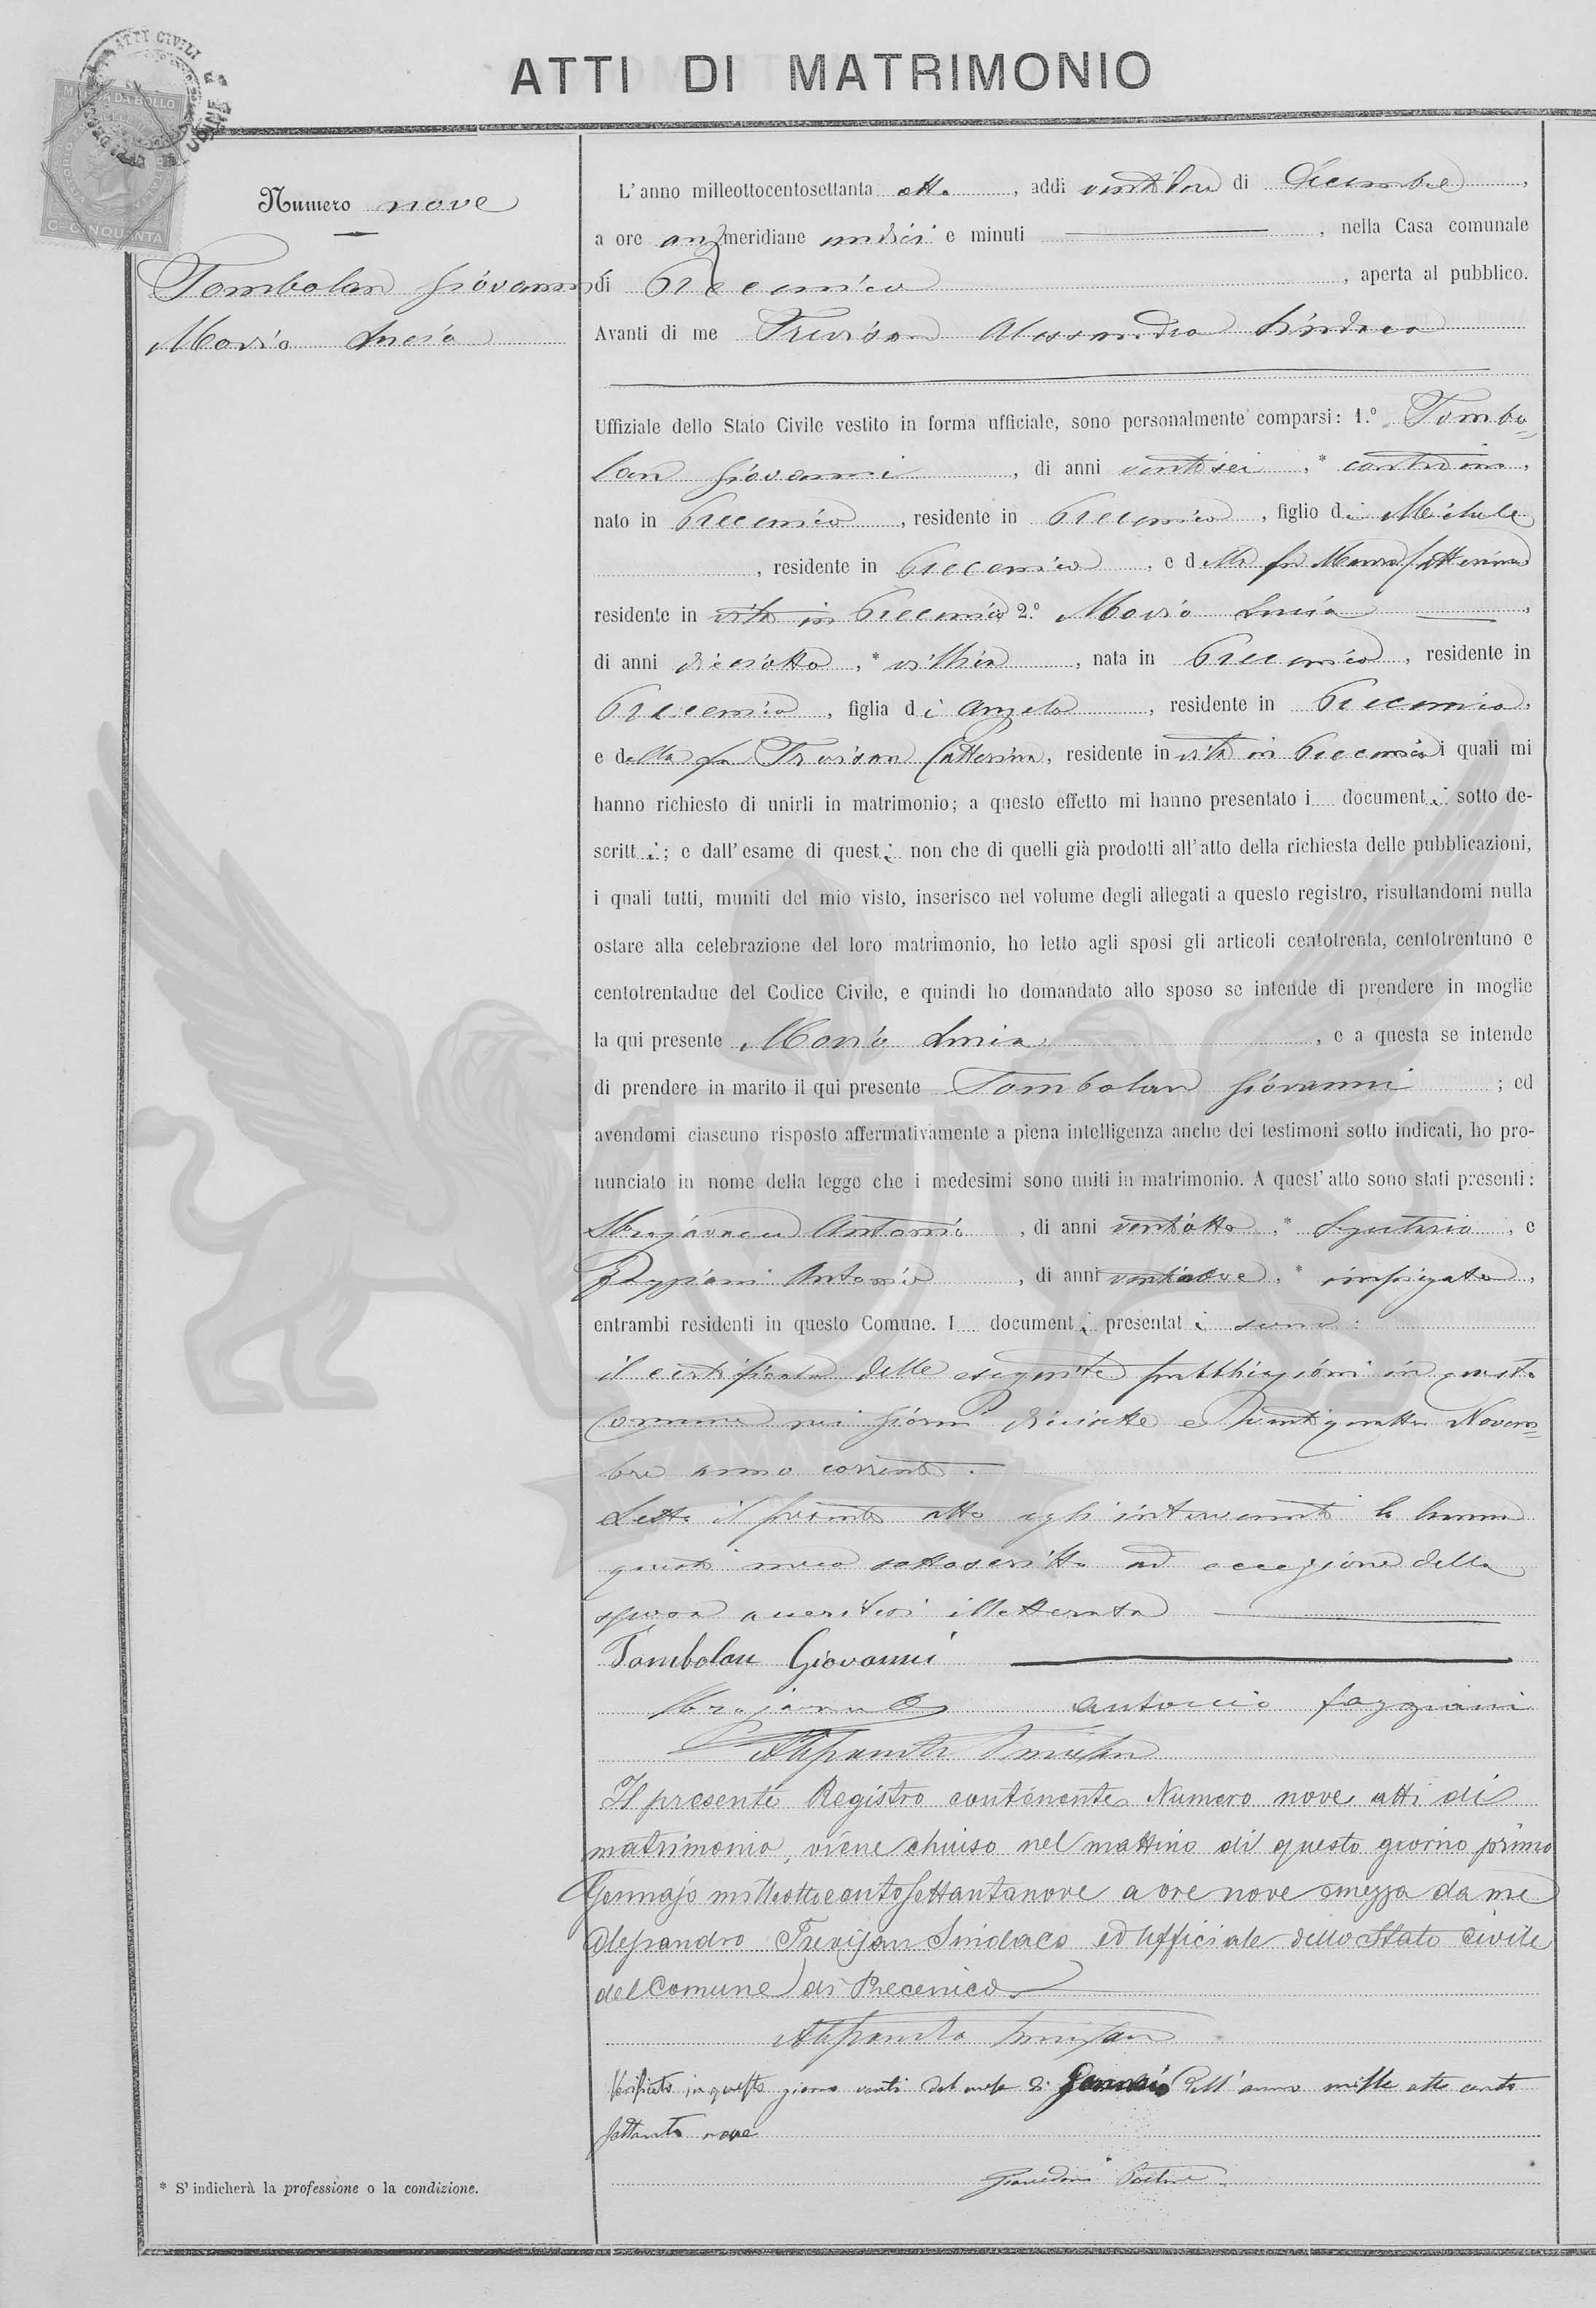 ATTI DI MATRIMONIO
ATTI CIVILI
UDINE
MARCA DA BOLLO
Cmi CINQUANTA
Numero nove
Tombolan Giovanni
Movio Lucia
L'anno milleottocentosettanta otto , addì di Decembre ,
a ore antimeridiane undici e minuti , nella Casa comunale
di Precenico , aperta al pubblico.
Avanti di me Trevisan Alessandro Sindaco
Uffiziale dello Stato Civile vestito in forma ufficiale, sono personalmente comparsi: 1.° Tombo=
lan Giovanni , di anni ventisei , * contadino ,
nato in Precenico , residente in Precenico , figlio di Michele
, residente in Precenico , e della fu Catterina
residente in vita in Precenico 2.° Movio Lucia ,
di anni dieciotto , * villica , nata in Precenico , residente in
Precenico , figlia di Angelo , residente in Precenico ,
e della fu Trevisan Catterina , residente in vita in Precenico i quali mi
hanno richiesto di unirli in matrimonio; a questo effetto mi hanno presentato i documenti sotto de-
scritti; e dall'esame di questi non che di quelli già prodotti all'atto della richiesta delle pubblicazioni,
i quali tutti, muniti del mio visto, inserisco nel volume degli allegati a questo registro, risultandomi nulla
ostare alla celebrazione del loro matrimonio, ho letto agli sposi gli articoli centotrenta, centotrentuno e
centotrentadue del Codice Civile, e quindi ho domandato allo sposo se intende di prendere in moglie
la qui presente Movio Lucia , e a questa se intende
di prendere in marito il qui presente Tombolan Giovanni ; ed
avendomi ciascuno risposto affermativamente a piena intelligenza anche dei testimoni sotto indicati, ho pro-
nunciato in nome della legge che i medesimi sono uniti in matrimonio. A quest'atto sono stati presenti:
Antonio , di anni ventiotto , * , e
Faggiani Antonio , di anni , * impiegato ,
entrambi residenti in questo Comune. I documenti presentati sono :
il certificato delle eseguite pubblicazioni in questo
Comune nei giorni diciisette e Ventiquattro Novem=
bre anno corrente .
Letto il presente atto agli intervenuti lo hanno
questi meco sottoscritto ad eccezione della
sposa illetterata
Tombolan Giovanni
Antonio Faggiani
Alessandro Trevisan
Il presente Registro contenente Numero nove atti di
matrimonio, viene chiuso nel mattino di questo giorno primo
Gennajo milleottocentosettantanove a ore nove e mezza da me
Alessandro Trevisan Sindaco ed Ufficiale dello Stato Civile
del Comune di Precenico
Alessandro Trevisan
Verificato in questo giorno venti del mese di Gennaio dell'anno mille otto cento
settanta nove
* S'indicherà la professione o la condizione.